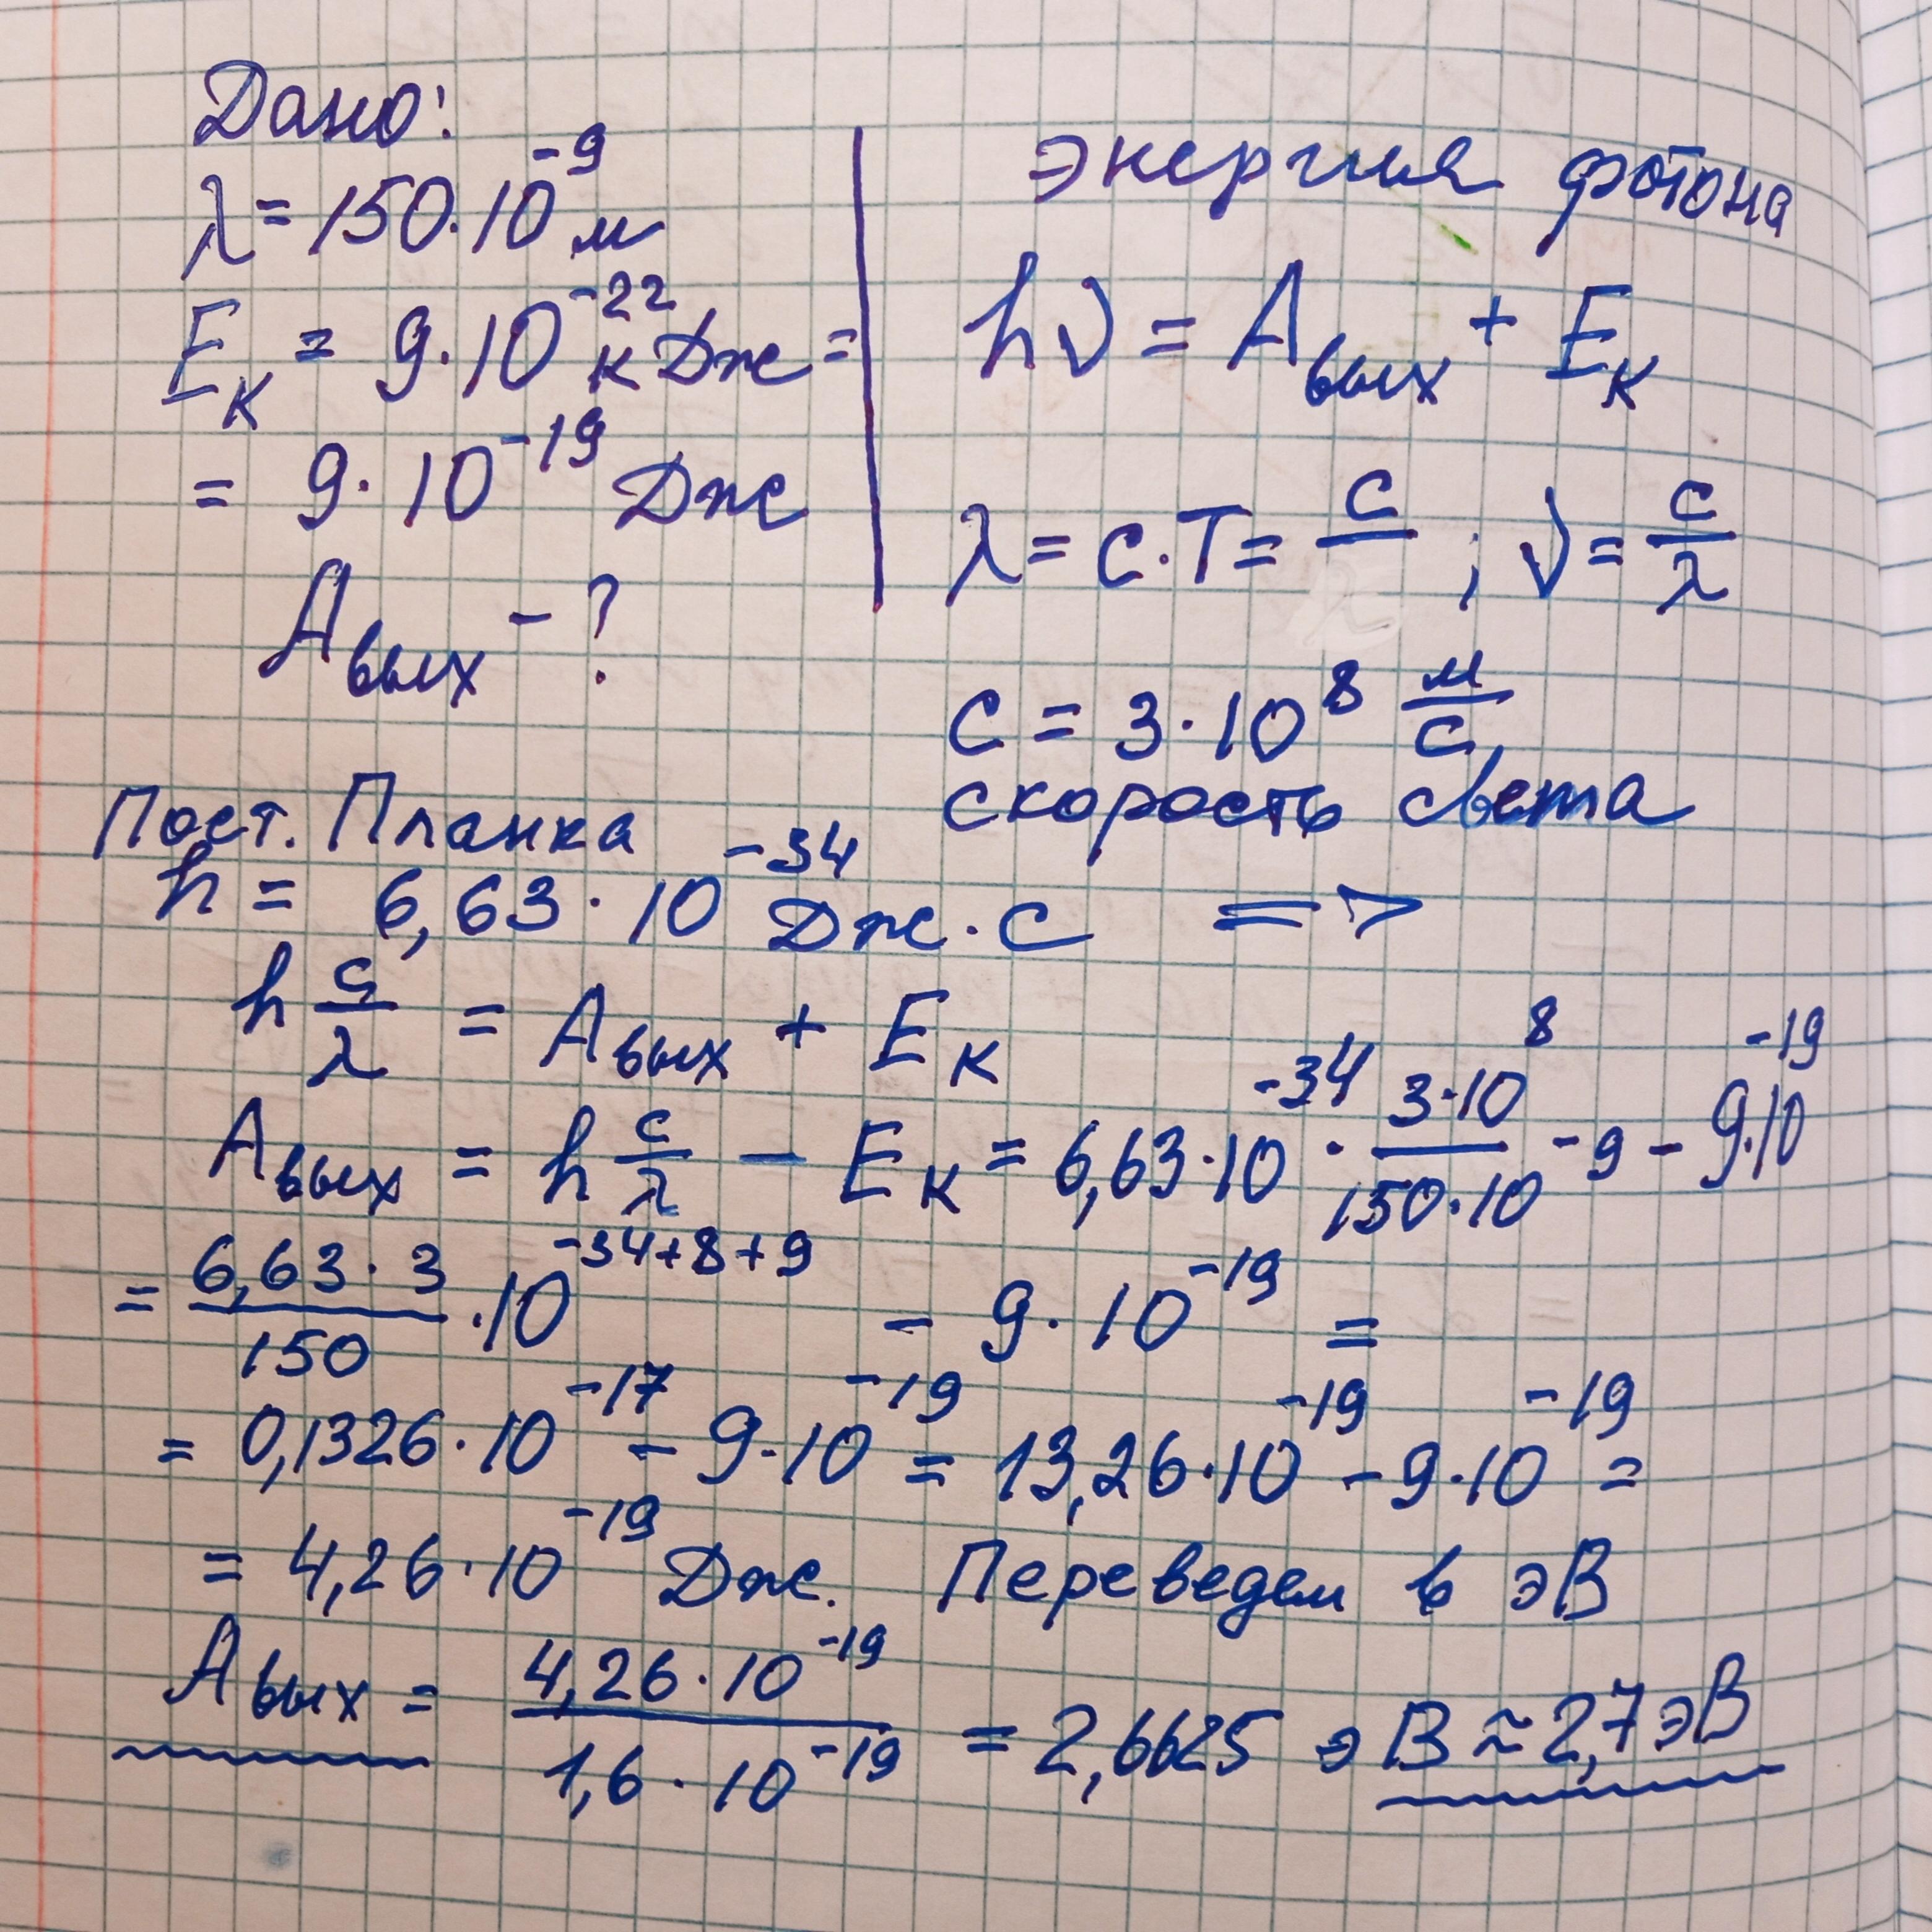 Дано:
λ = 150·10⁻⁹ м
Eк = 9·10⁻²² кДж =
= 9·10⁻¹⁹ Дж
Aвых - ?
Энергия фотона
hν = Aвых + Eк
λ = c·T = c/ ; ν = c/λ
c = 3·10⁸ м/с,
скорость света
Пост. Планка
h = 6,63·10⁻³⁴ Дж·с =>
h c/λ = Aвых + Eк
Aвых = h c/λ - Eк = 6,63·10⁻³⁴ · 3·10⁸/150·10⁻⁹ - 9·10⁻¹⁹
= 6,63·3/150 ·10⁻³⁴⁺⁸⁺⁹ - 9·10⁻¹⁹ =
= 0,1326·10⁻¹⁷ - 9·10⁻¹⁹ = 13,26·10⁻¹⁹ - 9·10⁻¹⁹ =
= 4,26·10⁻¹⁹ Дж. Переведем в эВ
Aвых = 4,26·10⁻¹⁹/1,6·10⁻¹⁹ = 2,6625 эВ ≈ 2,7 эВ